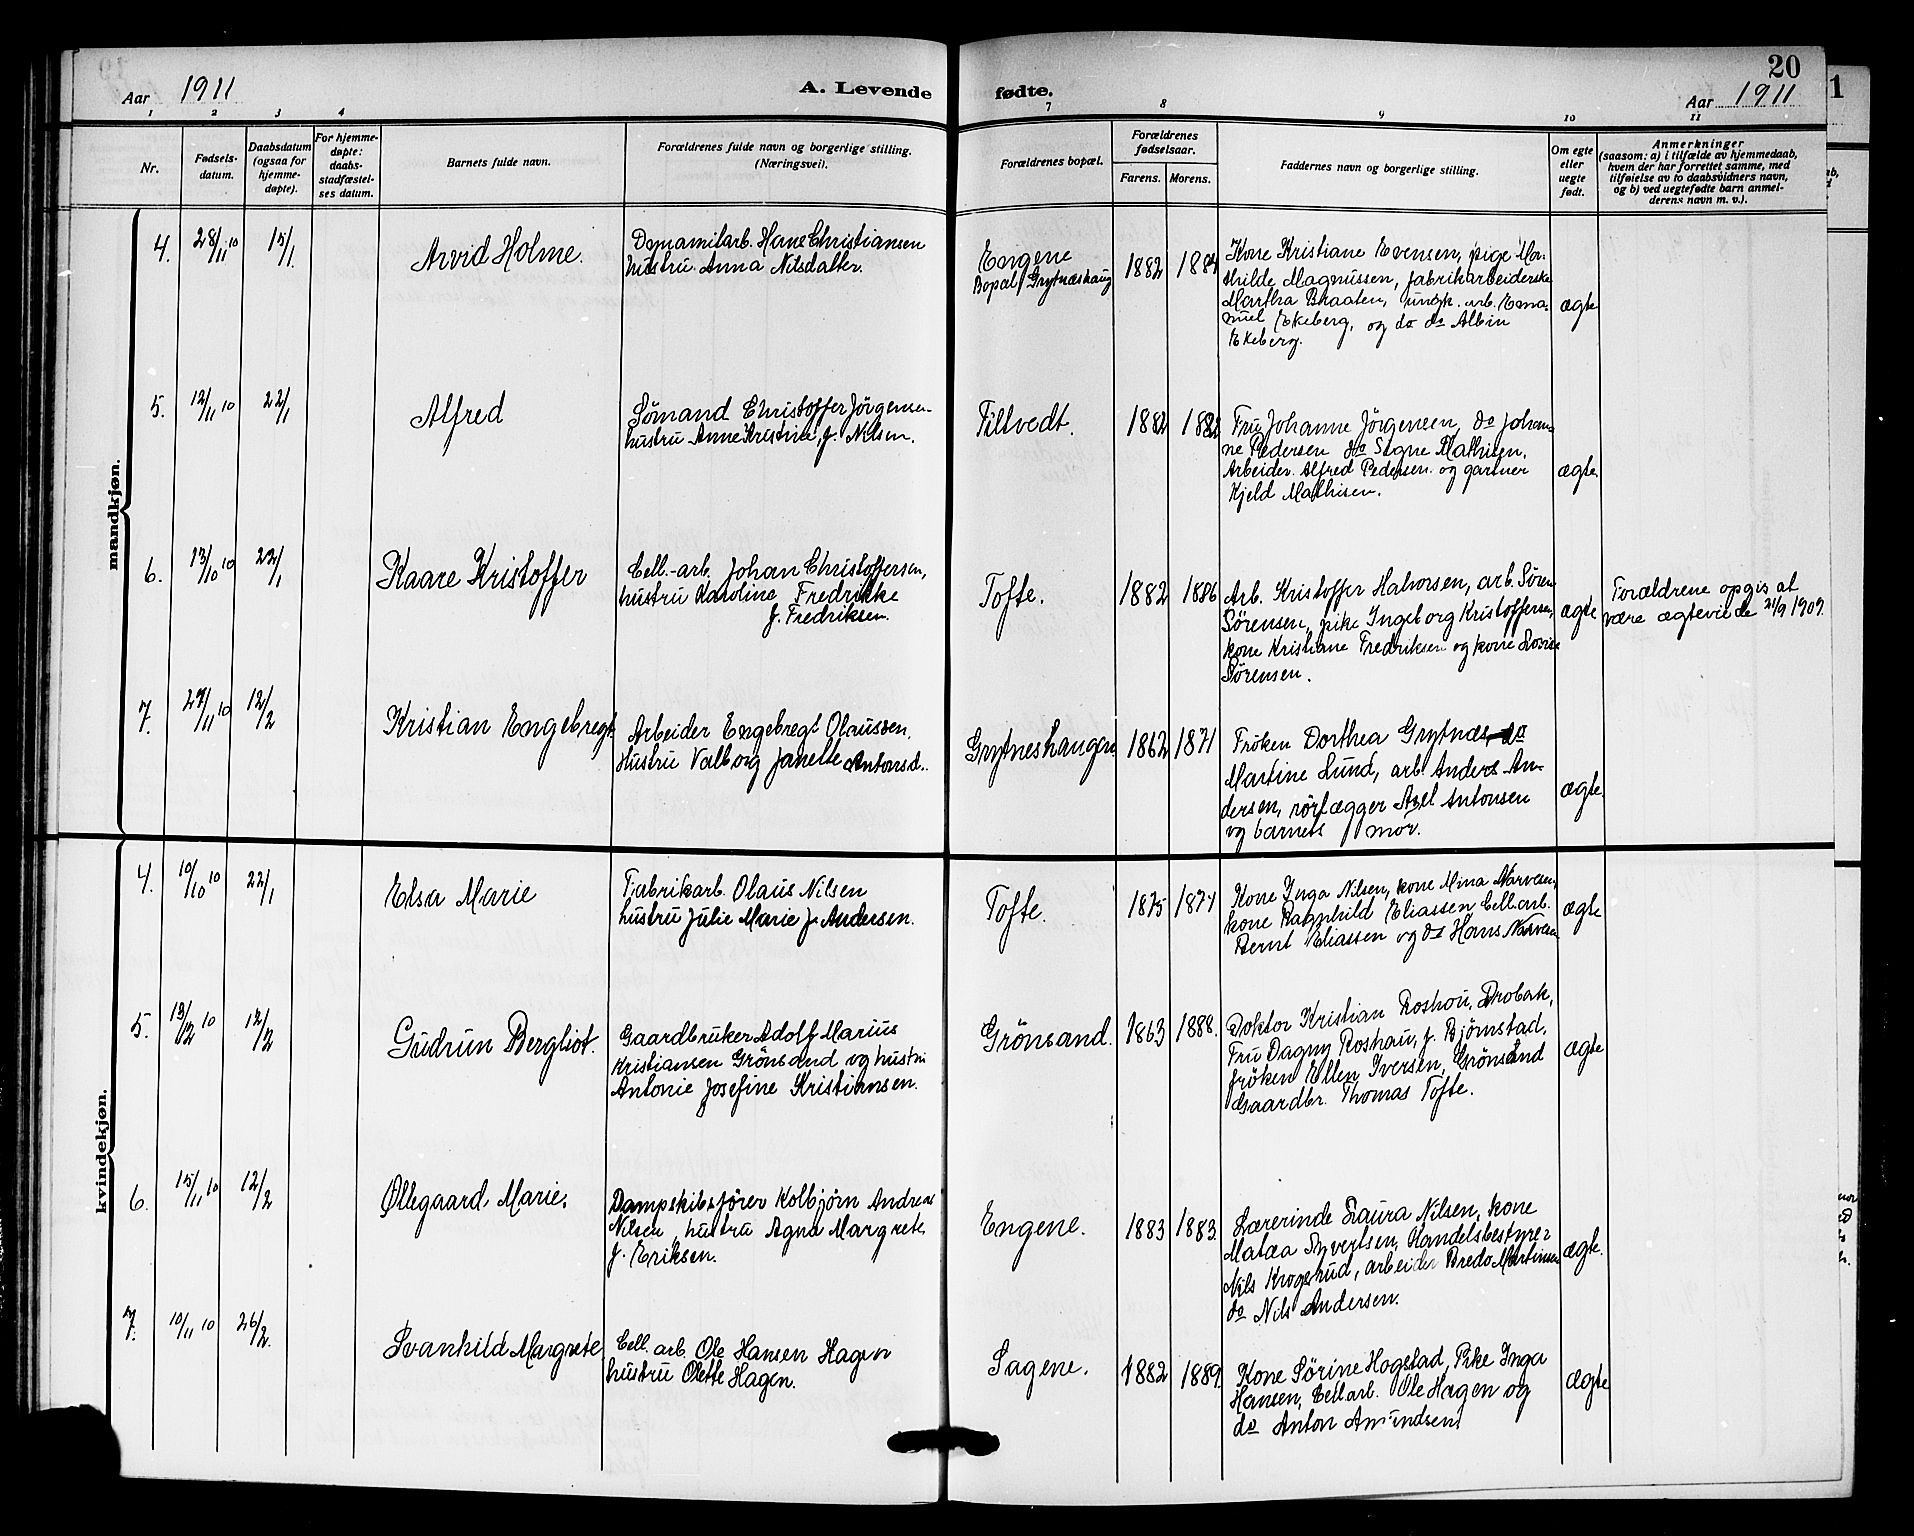 Aar 1911
A. Levende
fødte.
20
Aar 1911
1 2 3 4 7 8 9 10 11
Nr.
Fødsels-
datum.
Daabsdatum
(ogsaa for
hjemme-
døpte).
For hjemme-
døpte:
daabs-
stadfæstel-
ses datum.
Barnets fulde navn.
Forældrenes fulde navn og borgerlige stilling.
(Næringsvei).
Forældrenes bopæl.
Forældrenes
fødselsaar.
Farens. Morens.
Faddernes navn og borgerlige stilling.
Om egte
eller
uegte
født.
Anmerkninger
(saasom: a) i tilfælde av hjemmedaab,
hvem der har forrettet samme, med
tilføielse av to daabsvidners navn,
og b) ved uegtefødte barn anmel-
derens navn m. v.).
mandkjøn.
4. 28/11 10 15/1. Arvid Holme.
Dynamitarb. Hans Christiansen
hustru Anna Nilsdatter.
Engene
Bopæl Grytnæshaug
1882
Kone Kristiane Evensen, pige Ma-
thilde Magnussen, fabrikarbeiderske
Martha Braaten, ungk. arb. Ema-
nuel Ekeberg, og do do Albin
Ekeberg.
ægte
5. 12/11 10 22/1 Alfred
Sömand Christoffer Jörgensen
hustru Anne Kristine f. Nilsen.
Filtvedt.
1882
Fru Johanne Jörgensen, do Johan-
ne Pedersen do Signe Mathisen,
Arbeider Alfred Pedersen og gartner
Kjeld Mathisen.
ægte.
6. 13/10 10 22/1 Kaare Kristoffer
Cell.-arb. Johan Christoffersen,
hustru Karoline Fredrikke
f. Fredriksen.
Tofte.
1882 1886
Arb. Kristoffer Halvorsen, arb. Sören
Sörensen, pike Ingeborg Kristoffersen,
kone Kristiane Fredriksen og kone Lovise
Sörensen.
ægte
Forældrene opgis at
være ægteviede 21/9 1909.
7. 27/11 10 12/2 Kristian Engebregt
Arbeider Engebregt Olaussen.
Hustru Valborg Janette Antonsd..
Grytneshaugen.
1862 1871
Fröken Dorthea Grytnæs, do
Martine Lund, arb. Anders An-
dersen, rörlægger Axel Antonsen
og barnets mor.
ægte.
kvindekjøn.
4. 10/10 10 22/1 Elsa Marie
Fabrikarb. Olaus Nilsen
hustru Julie Marie f. Andersen.
Tofte.
1875 1871
Kone Inga Nilsen, kone Mina Narvesen,
kone Ragnhild Eliassen, Cell.arb.
Bernt Eliassen og do Hans Narvesen
ægte
5. 13/12 10 12/2 Gudrun Bergliot.
Gaardbruker Adolf Marius
Kristiansen Grönsand og hustru
Antonie Josefine Kristiansen.
Grönsand.
1863 1888.
Doktor Kristian Roshou, Drobak,
Fru Dagny Roshau, f. Bjørnstad.
fröken Ellen Iversen, Grönsand
Gaardbr. Thomas Tofte.
ægte
6. 15/11 10 12/2 Ollegaard, Marie.
Dampskibsförer Kolbjörn Andreas
Nilsen, hustru Agna Margrete
f. Eriksen.
Engene.
1883 1883.
Lærerinde Laura Nilsen, kone
Matæa Syvertsen, Handelsbestyrer
Nils Krogsrud, arbeider Bredo Martinsen
do Nils Andersen.
ægte.
7. 10/11 10 26/2. Svanhild Margrete
Cell. arb. Ole Hansen Hagen
hustru Olette Hagen.
Sagene.
1882 1889.
Kone Sörine Hogstad, Pike Inga
Hansen, Cell.arb. Ole Hagen og
do Anton Amundsen.
ægte